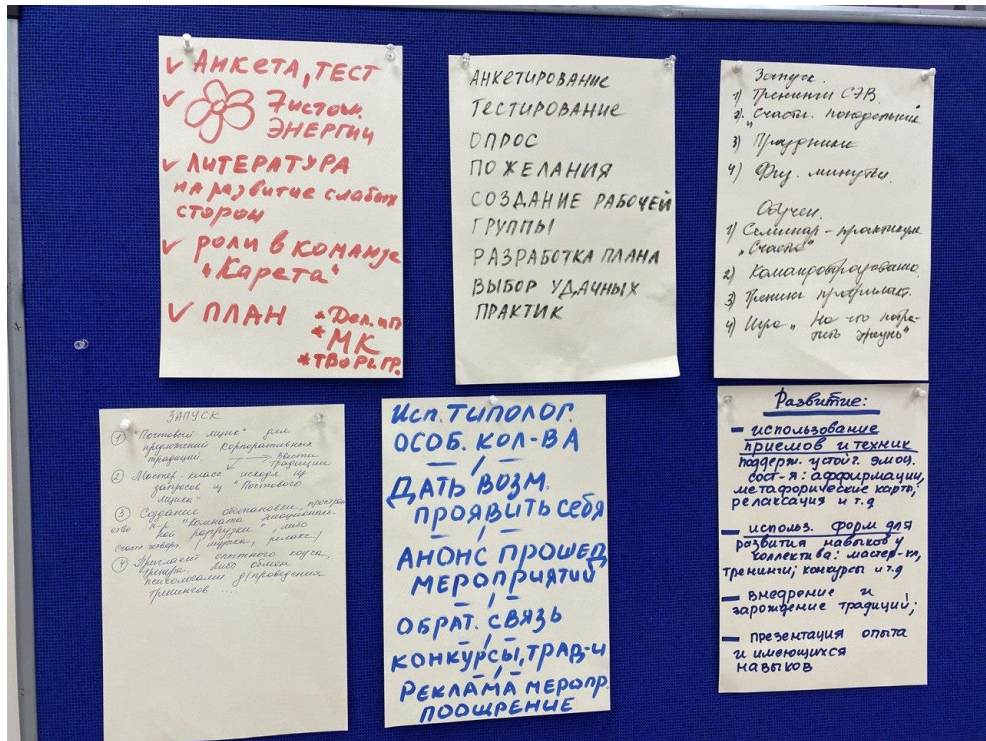 ✓ АНКЕТА, ТЕСТ
✓ 7 источ.
ЭНЕРГИИ
✓ ЛИТЕРАТУРА
на развитие слабых
сторон
✓ роли в команде
"Карета"
✓ ПЛАН * Дел. иг.
* МК
* ТВОРЧ. ГР.
АНКЕТИРОВАНИЕ
ТЕСТИРОВАНИЕ
ОПРОС
ПОЖЕЛАНИЯ
СОЗДАНИЕ РАБОЧЕЙ
ГРУППЫ
РАЗРАБОТКА ПЛАНА
ВЫБОР УДАЧНЫХ
ПРАКТИК
Запуск.
1) Тренинги СЭВ.
2) "Счастл. понедельник"
3) Праздники
4) Физ. минутки.
Обучен.
1) Семинар – практикум
"Счастье"
2) Командообразование
3) Тренинг профилакт.
4) Игра "На что потра-
тить жизнь"
ЗАПУСК
1 "Почтовый ящик" для
предложений корпоративных
традиций → Ввести
традиции
2 Мастер класс исходя из
запросов из "Почтового
ящика"
3 Создание обстановки, простран
ства н-р "Комната эмоциональ-
ной разгрузки" либо
(музыка, релакс)
4 Пригласит опытного коуча,
тренера либо обмен
психологами д/проведения
тренингов ...
Исп. ТИПОЛОГ.
ОСОБ. КОЛ-ВА
ДАТЬ ВОЗМ.
ПРОЯВИТЬ СЕБЯ
АНОНС ПРОШЕД.
МЕРОПРИЯТИЙ
ОБРАТ. СВЯЗЬ
КОНКУРСЫ, ТРАД-И
РЕКЛАМА МЕРОПР.
ПООЩРЕНИЕ
Развитие:
– использование
приемов и техник
поддерж. устойч. эмоц.
сост-я: аффирмации,
метафорические карты,
релаксация и т.д
– использ. форм для
развития навыков у
коллектива: мастер-кл,
тренинги; конкурсы и т.д
– внедрение и
зарождение традиций;
– презентация опыта
и имеющихся
навыков